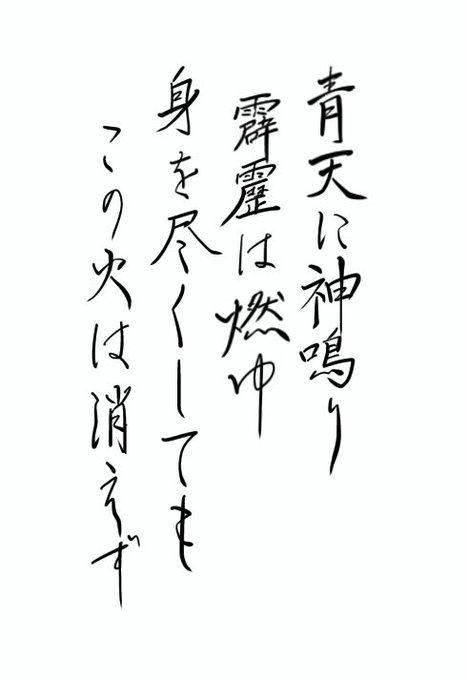 青天に神鳴り
霹靂は燃ゆ
身を尽くしても
この火は消えず